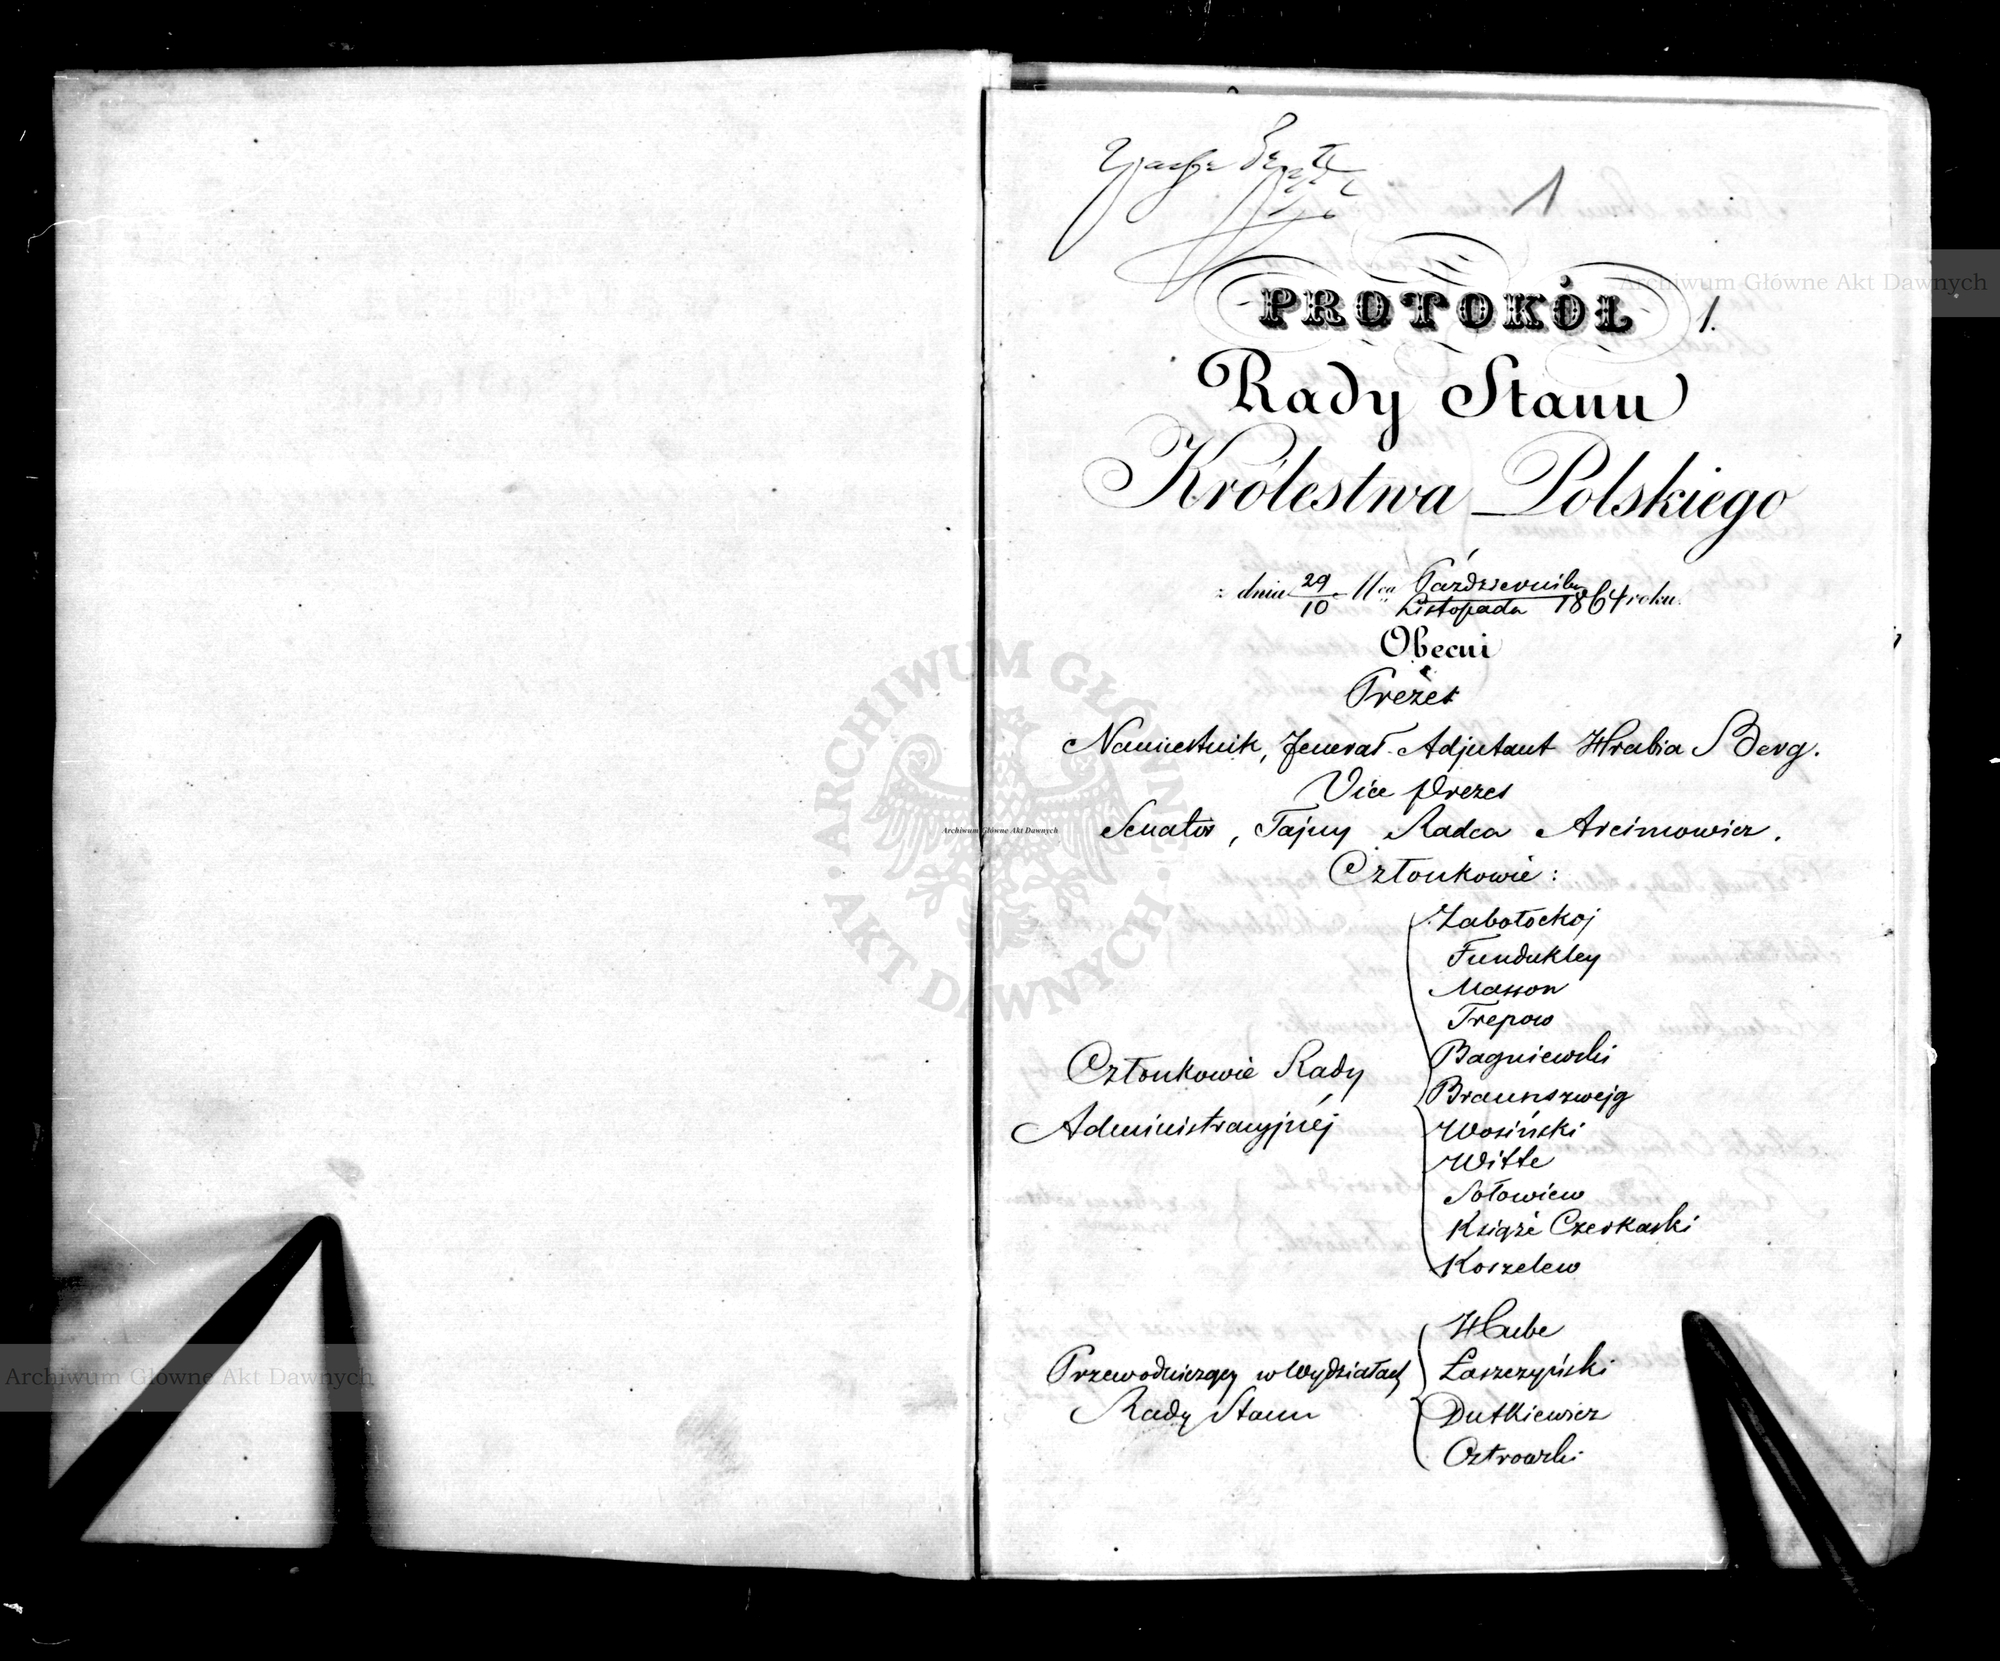 1
PROTOKÓŁ 1.
Rady Stanu
Królestwa Polskiego
z dnia 29/10 11ca Października/Listopada 1864 roku.
Obecni
Prezes
Namiestnik, Jenerał-Adjutant Hrabia Berg.
Vice Prezes
Senator, Tajny Radca Arcimowicz.
Członkowie:
Członkowie Rady
Administracyjnéj
Zabołockoj
Fundukley
Masson
Trepow
Bagniewski
Braunszwejg
Wosiński
Witte
Sołowiew
Książe Czerkaski
Koszelew
Przewodniczący w Wydziałach
Rady Stanu
Hube
Łaszczyński
Dutkiewicz
Ostrowski
Archiwum Główne Akt Dawnych
ARCHIWUM GŁÓWNE AKT DAWNYCH
Archiwum Główne Akt Dawnych
Archiwum Główne Akt Dawnych